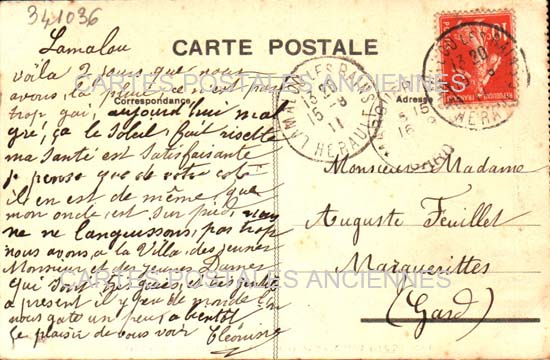 341036
Lamalou
CARTE POSTALE
Correspondance
Adresse
voilà 2 jours que nous
avons la pluie ce n'est pas
trop gai, aujourd'hui mal
gré, ça le Soleil, fait risette
ma Santé est Satisfaisante
je pense que de votre coté
il en est de même que
mon oncle, est sur pied, nous
ne ne languissons, pas trop
nous avons, a la Villa, des jeunes
Monsieur et des jeunes Dames
qui sont gaies, et très
a présent il y a peu de monde
nous gate un peu, a bientôt
le plaisir de vous voir Cléonise
Monsieur Madame
Auguste Feuillet
Marguerittes
(Gard)
LAMALOU-LES-BAINS
13 20
15 - 9
11
HERAULT
LES-BAINS
13 20
HERAULT
15
16
GARD
REPUBLIQUE FRANÇAISE
CARTES POSTALES ANCIENNES
CARTES POSTALES ANCIENNES